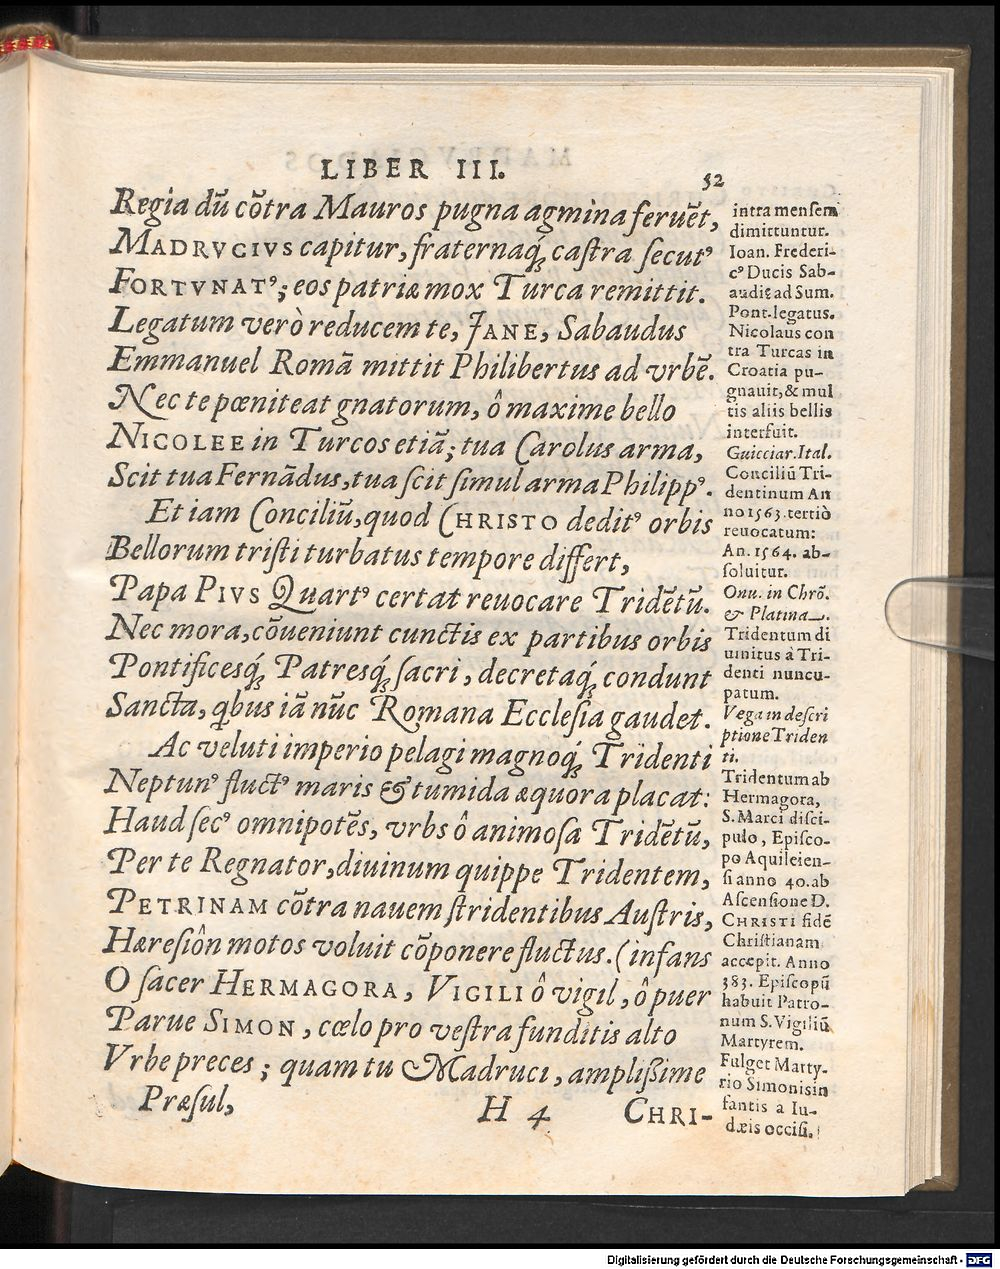 LIBER III.
52
Regia dū cōtra Mauros pugna agmina feruēt,
MADRVCIVS capitur, fraternaq́; caſtra ſecutꝰ
FORTVNATꝰ; eos patriæ mox Turca remittit.
Legatum verò reducem te, JANE, Sabaudus
Emmanuel Romā mittit Philibertus ad vrbē.
Nec te pœniteat gnatorum, ô maxime bello
NICOLEE in Turcos etiā; tua Carolus arma,
Scit tua Fernādus, tua ſcit ſimul arma Philippꝰ.
Et iam Conciliū, quod CHRISTO deditꝰ orbis
Bellorum triſti turbatus tempore differt,
Papa PIVS Quartꝰ certat reuocare Tridētū.
Nec mora, cōueniunt cunctis ex partibus orbis
Pontificesq́; Patresq́; ſacri, decretaq́; condunt
Sancta, qbus iā nūc Romana Eccleſia gaudet.
Ac veluti imperio pelagi magnoq́; Tridenti
Neptunꝰ fluctꝰ maris & tumida æquora placat:
Haud ſecꝰ omnipotēs, vrbs ô animoſa Tridētū,
Per te Regnator, diuinum quippe Tridentem,
PETRINAM cōtra nauem ſtridentibus Auſtris,
Hæreſiôn motos voluit cōponere fluctus. (infans
O ſacer HERMAGORA, VIGILI ô vigil, ô puer
Parue SIMON, cœlo pro veſtra funditis alto
Vrbe preces; quam tu Madruci, ampliſsime
Præſul,
H 4
CHRI-
intra menſem
dimittuntur.
Ioan. Frederi-
cꝰ Ducis Sab-
audię ad Sum.
Pont. legatus.
Nicolaus con
tra Turcas in
Croatia pu-
gnauit, & mul
tis aliis bellis
interfuit.
Guicciar. Ital.
Conciliū Tri-
dentinum An
no 1563. tertiò
reuocatum:
An. 1564. ab-
ſoluitur.
Onu. in Chrō.
& Platina.
Tridentum di
uinitus à Tri-
denti nuncu-
patum.
Vega in deſcri
ptione Triden
ti.
Tridentum ab
Hermagora,
S. Marci diſci-
pulo, Epiſco-
po Aquileien-
ſi anno 40. ab
Aſcenſione D.
CHRISTI fidē
Chriſtianam
accepit. Anno
383. Epiſcopū
habuit Patro-
num S. Vigiliū
Martyrem.
Fulget Marty-
rio Simonis in
fantis a Iu-
dæis occiſi.
Digitalisierung gefördert durch die Deutsche Forschungsgemeinschaft - DFG